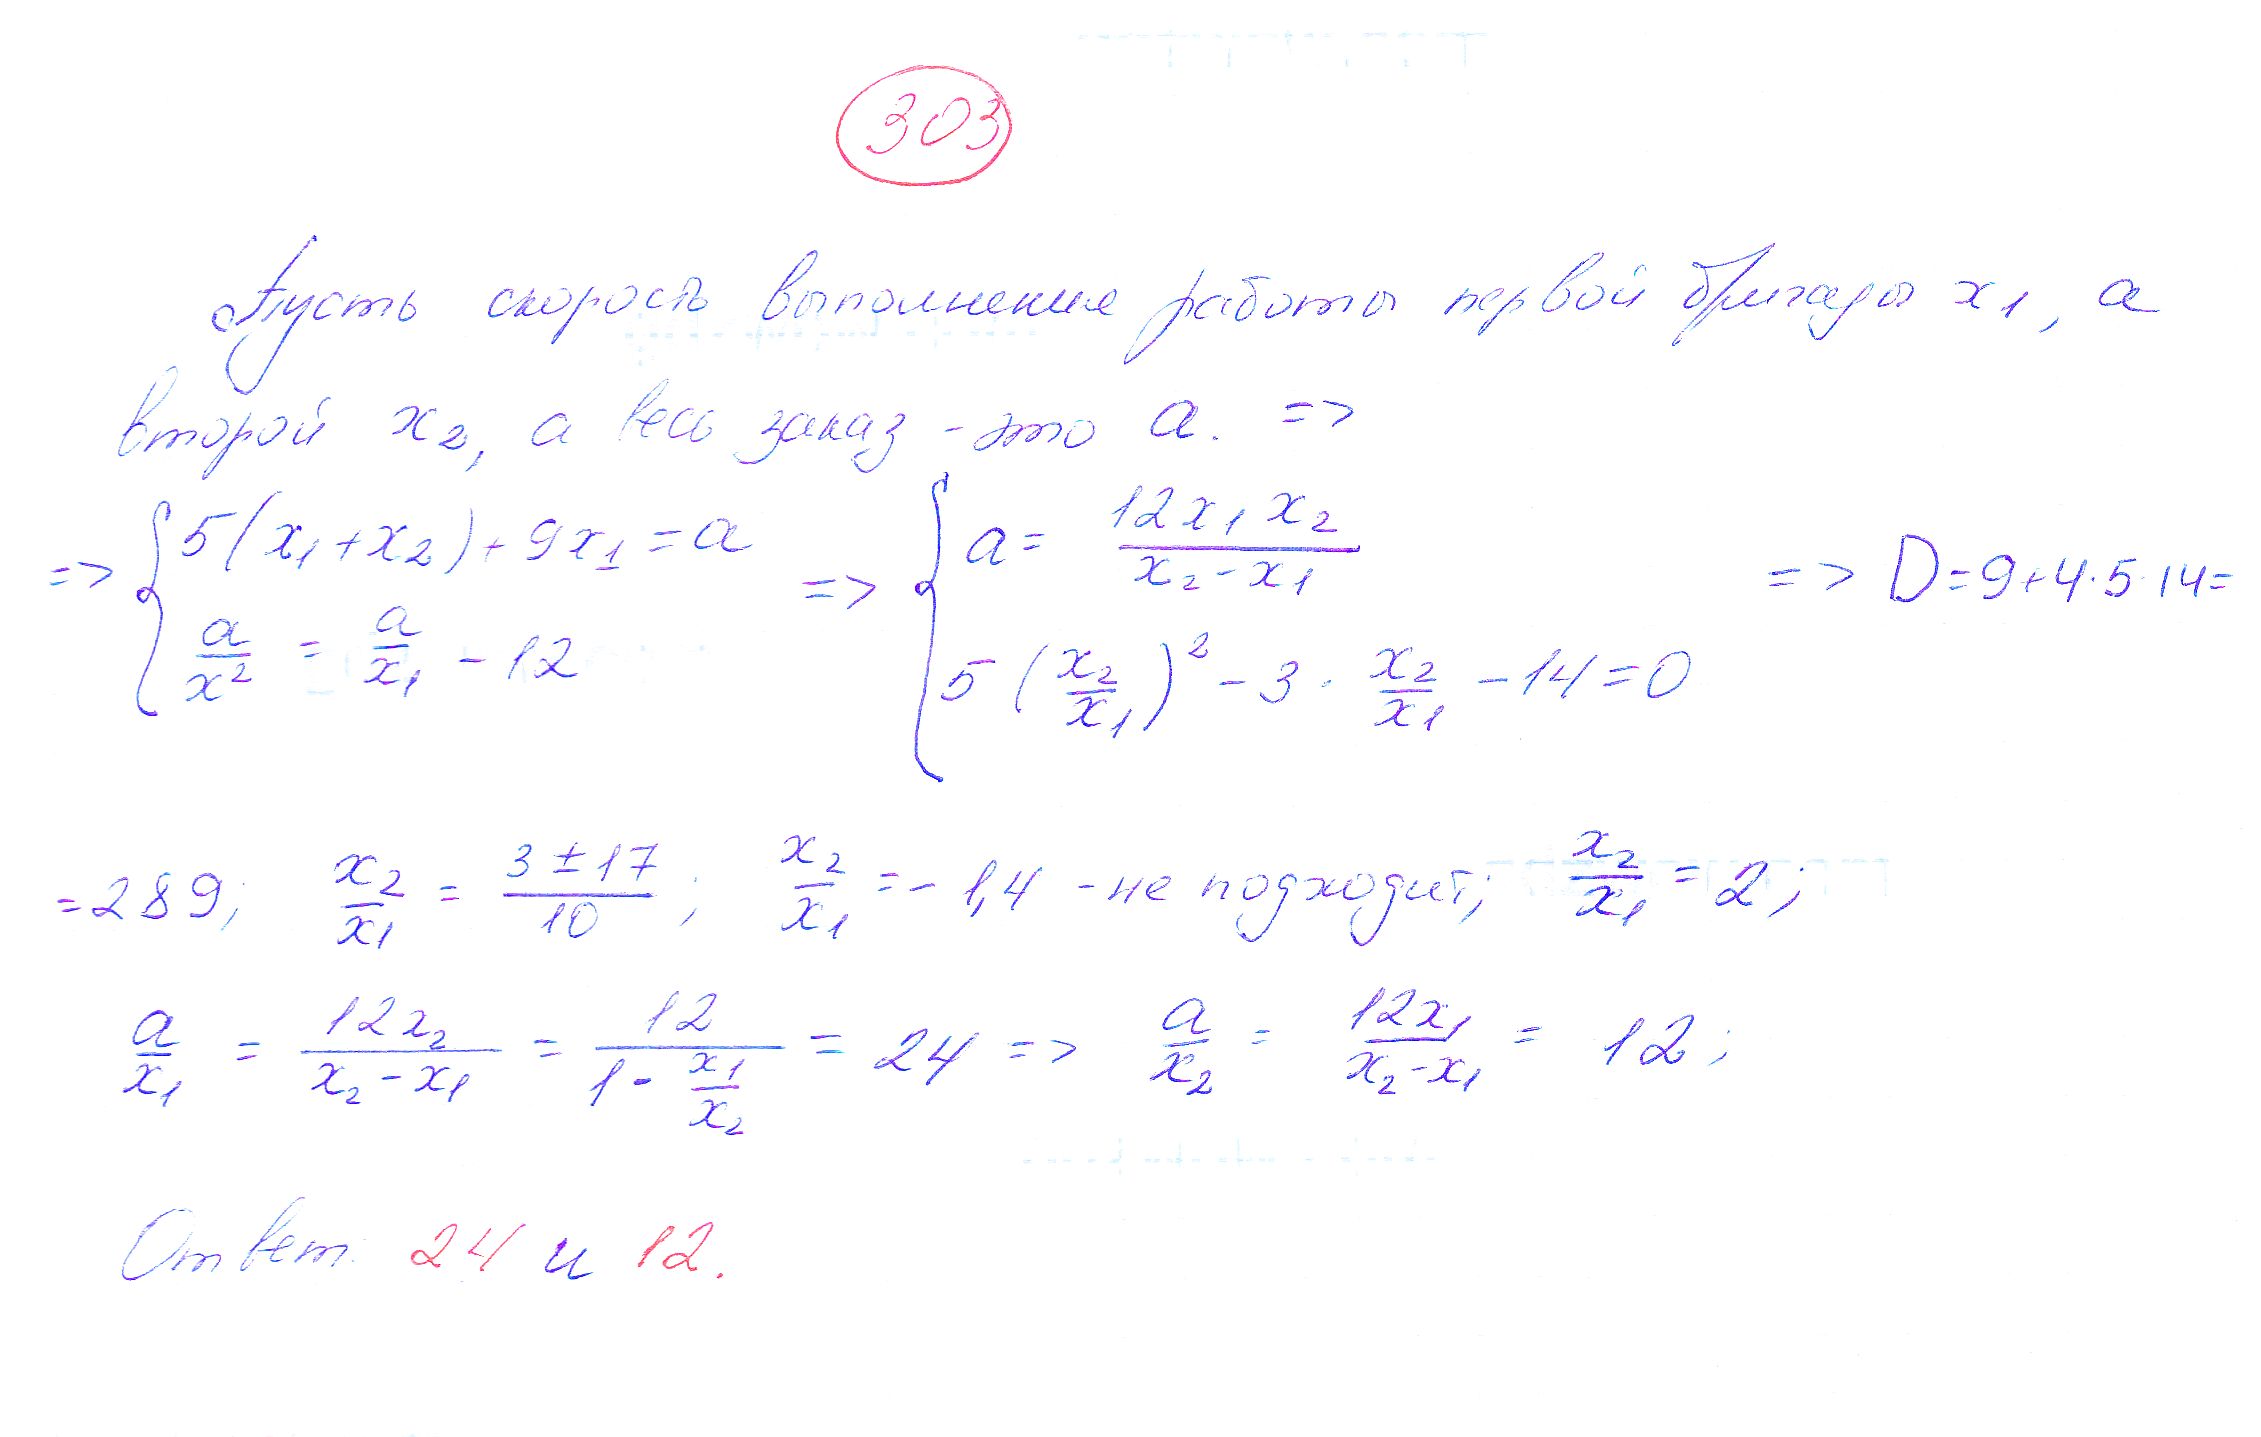 303
Пусть скорость выполнения работы первой бригады x₁, а
второй x₂, а весь заказ - это a. =>
=> { 5(x₁+x₂)+9x₁=a ; a/x² = a/x₁ - 12 => { a = 12x₁x₂/(x₂-x₁) ; 5(x₂/x₁)² - 3 · x₂/x₁ - 14 = 0 => D=9+4·5·14=
=289; x₂/x₁ = (3±17)/10 ; x₂/x₁ = - 1,4 - не подходит; x₂/x₁ = 2;
a/x₁ = 12x₂/(x₂-x₁) = 12/(1 - x₁/x₂) = 24 => a/x₂ = 12x₁/(x₂-x₁) = 12;
Ответ: 24 и 12.